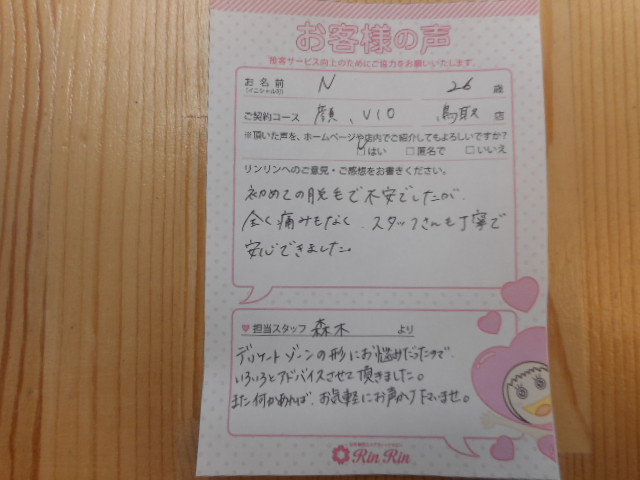 お客様の声
接客サービス向上のためにご協力をお願いいたします。
お名前 N 26 歳
(イニシャル可)
ご契約コース 顔、VIO 鳥取 店
※頂いた声を、ホームページや店内でご紹介してもよろしいですか?
はい □匿名で □いいえ
リンリンへのご意見・ご感想をお書きください。
初めての脱毛で不安でしたが、
全く痛みもなく、スタッフさんも丁寧で
安心できました。
♥担当スタッフ 森木 より
デリケートゾーンの形にお悩みだったので、
いろいろとアドバイスさせて頂きました。
また何かあれば、お気軽にお声かけ下さいませ。
Rin Rin